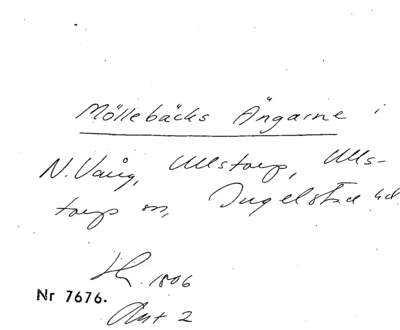 Möllebäcks Ängarne i
N. Vång, Ullstorp, Ulls-
torps sn, Ingelstad hd.
1806
Nr 7676.
Akt 2